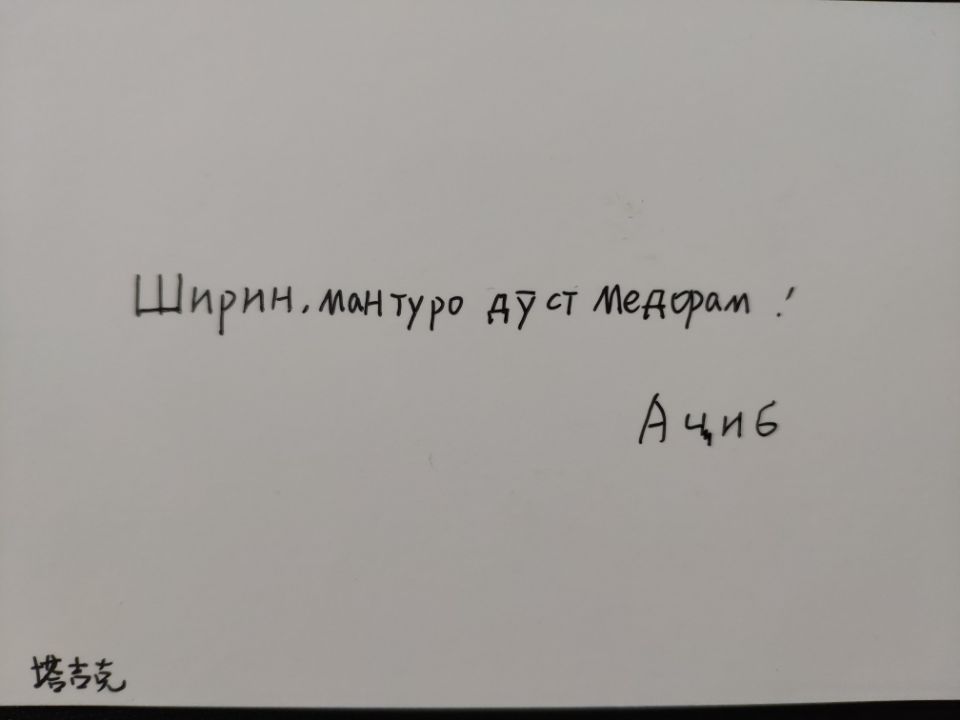 Ширин, ман туро дӯст медорам!
Ациб
塔吉克